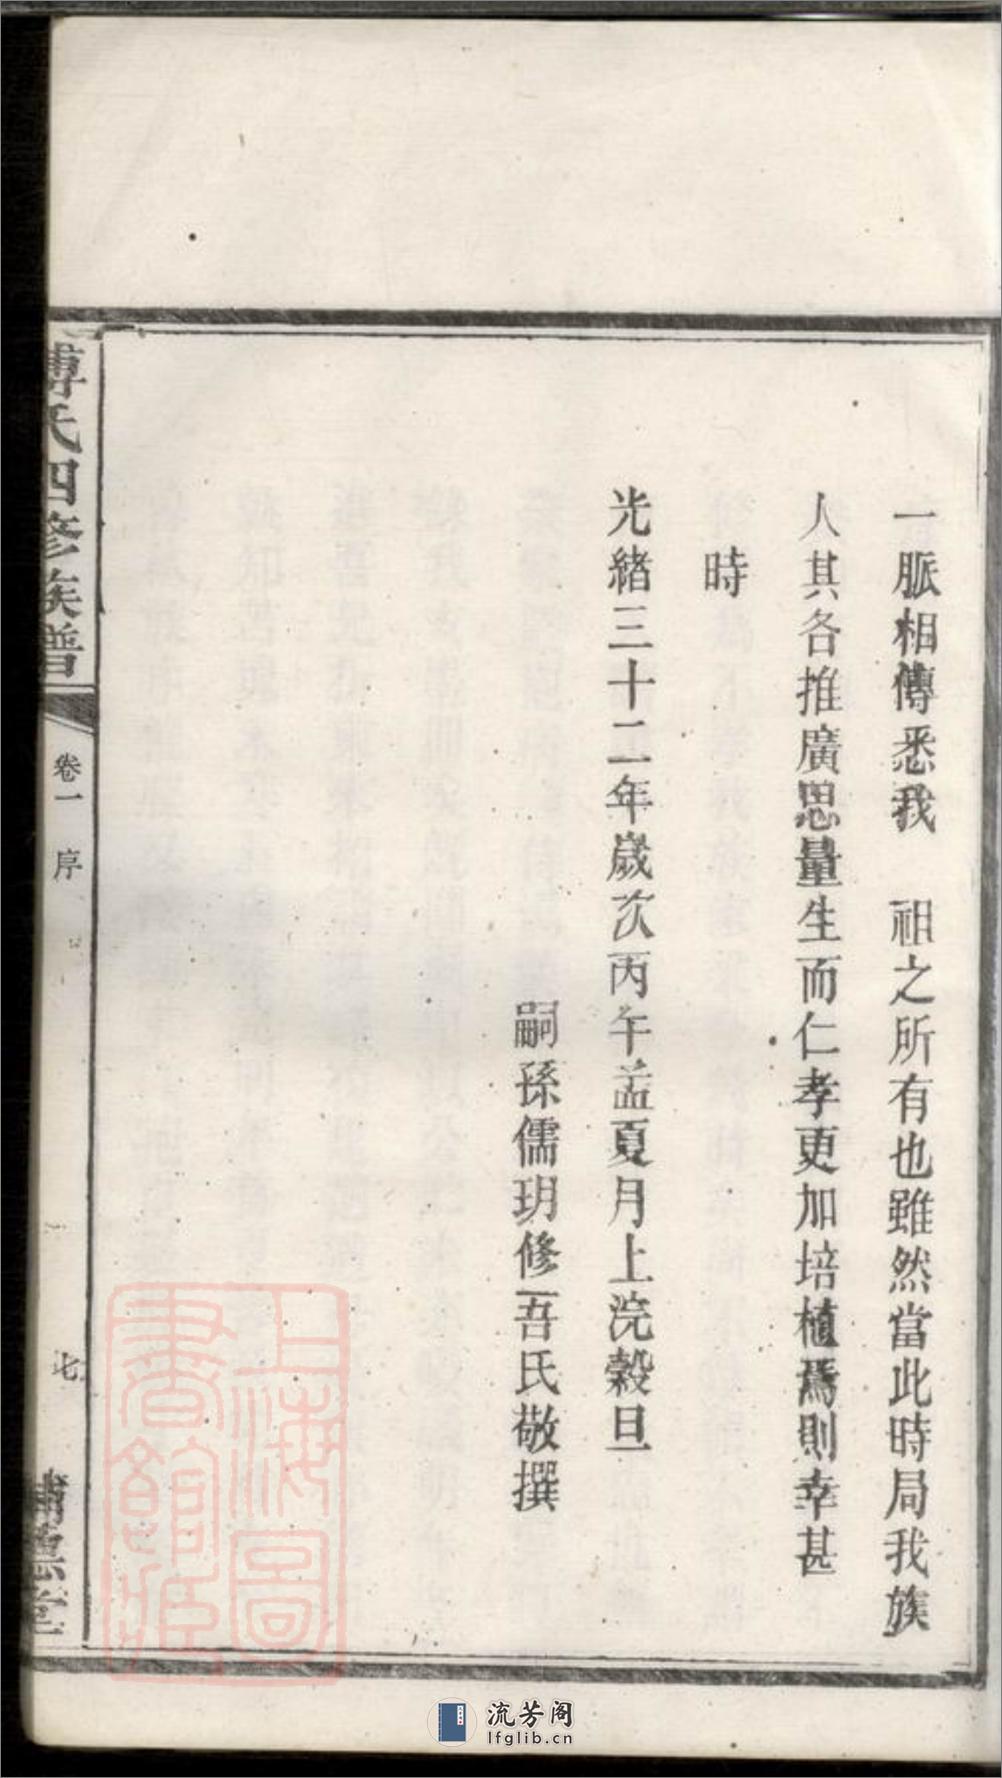 一脈相傳悉我　祖之所有也雖然當此時局我族
人其各推廣思量生而仁孝更加培植焉則幸甚
時
光緒三十二年歲次丙午孟夏月上浣穀旦
嗣孫儒玥修吾氏敬撰
傅氏四修族譜
卷一　序
七
堂
上海圖書館藏
流芳阁
lfglib.cn